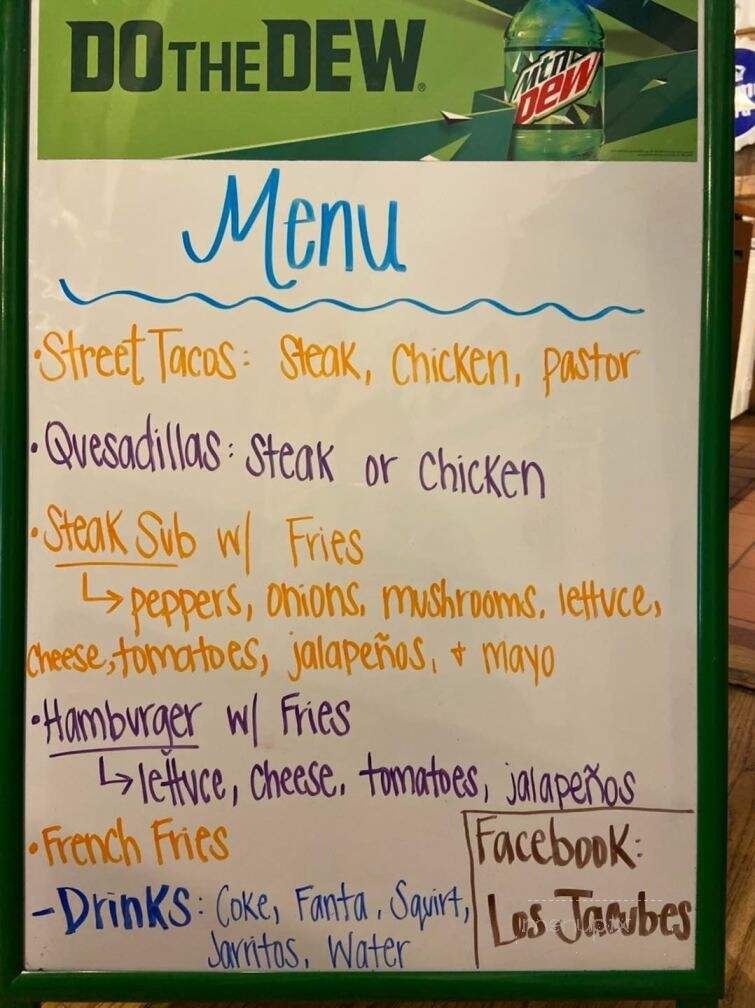 DO THE DEW®
mtn
DEW
Menu
•Street Tacos: Steak, Chicken, pastor
•Quesadillas: Steak or Chicken
•Steak Sub w/ Fries
↳peppers, onions, mushrooms, lettuce,
cheese, tomatoes, jalapeños, + mayo
•Hamburger w/ Fries
↳lettuce, cheese, tomatoes, jalapeños
•French Fries
-Drinks: Coke, Fanta, Squirt,
Jarritos, Water
Facebook:
Los Jacubes